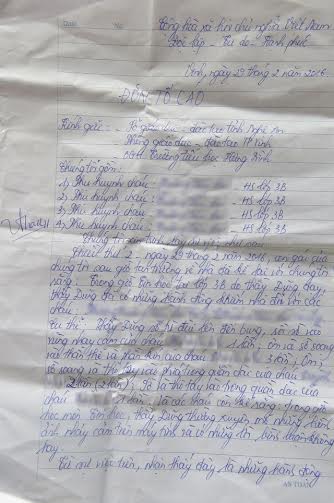 Cộng hòa xã hội chủ nghĩa Việt Nam
Độc lập - Tự do - Hạnh phúc
Vinh, ngày 29 tháng 2 năm 2016
ĐƠN TỐ CÁO
Kính gửi: - Sở giáo dục - đào tạo tỉnh Nghệ An
Phòng giáo dục - đào tạo TP Vinh
BGH Trường tiểu học Hưng Bình
Chúng tôi gồm:
1) Phụ huynh cháu: - HS lớp 3B
2) Phụ huynh cháu: - HS lớp 3B
3) Phụ huynh cháu: - HS lớp 3B
4) Phụ huynh cháu: - HS lớp 3B
Chúng tôi xin trình bày sự việc như sau
Chiều thứ 2, ngày 29 tháng 2 năm 2016, con gái của
chúng tôi sau giờ tan trường về nhà đã kể lại với chúng tôi
rằng: Trong giờ Tin học tại lớp 3B do thầy Dũng dạy,
thầy Dũng đã có những hành động khiếm nhã đối với các
cháu.
Cụ thể: Thầy Dũng sờ từ đầu đến bụng, sờ
vùng nhạy cảm của cháu 1 lần; ôm và sờ soạng
thân thể và của cháu 3 lần; ôm,
sờ soạng và thò tay vào trong quần của cháu
2 lần (2 lần); thò tay vào trong quần của
cháu lần. các cháu còn kể rằng: trong giờ
học môn Tin học, thầy Dũng thường xuyên mở những hình
ảnh nhạy cảm trên máy tính và có những lời bình
hay.
Từ sự việc trên, nhận thấy đây là những hành động
AN TOÀN